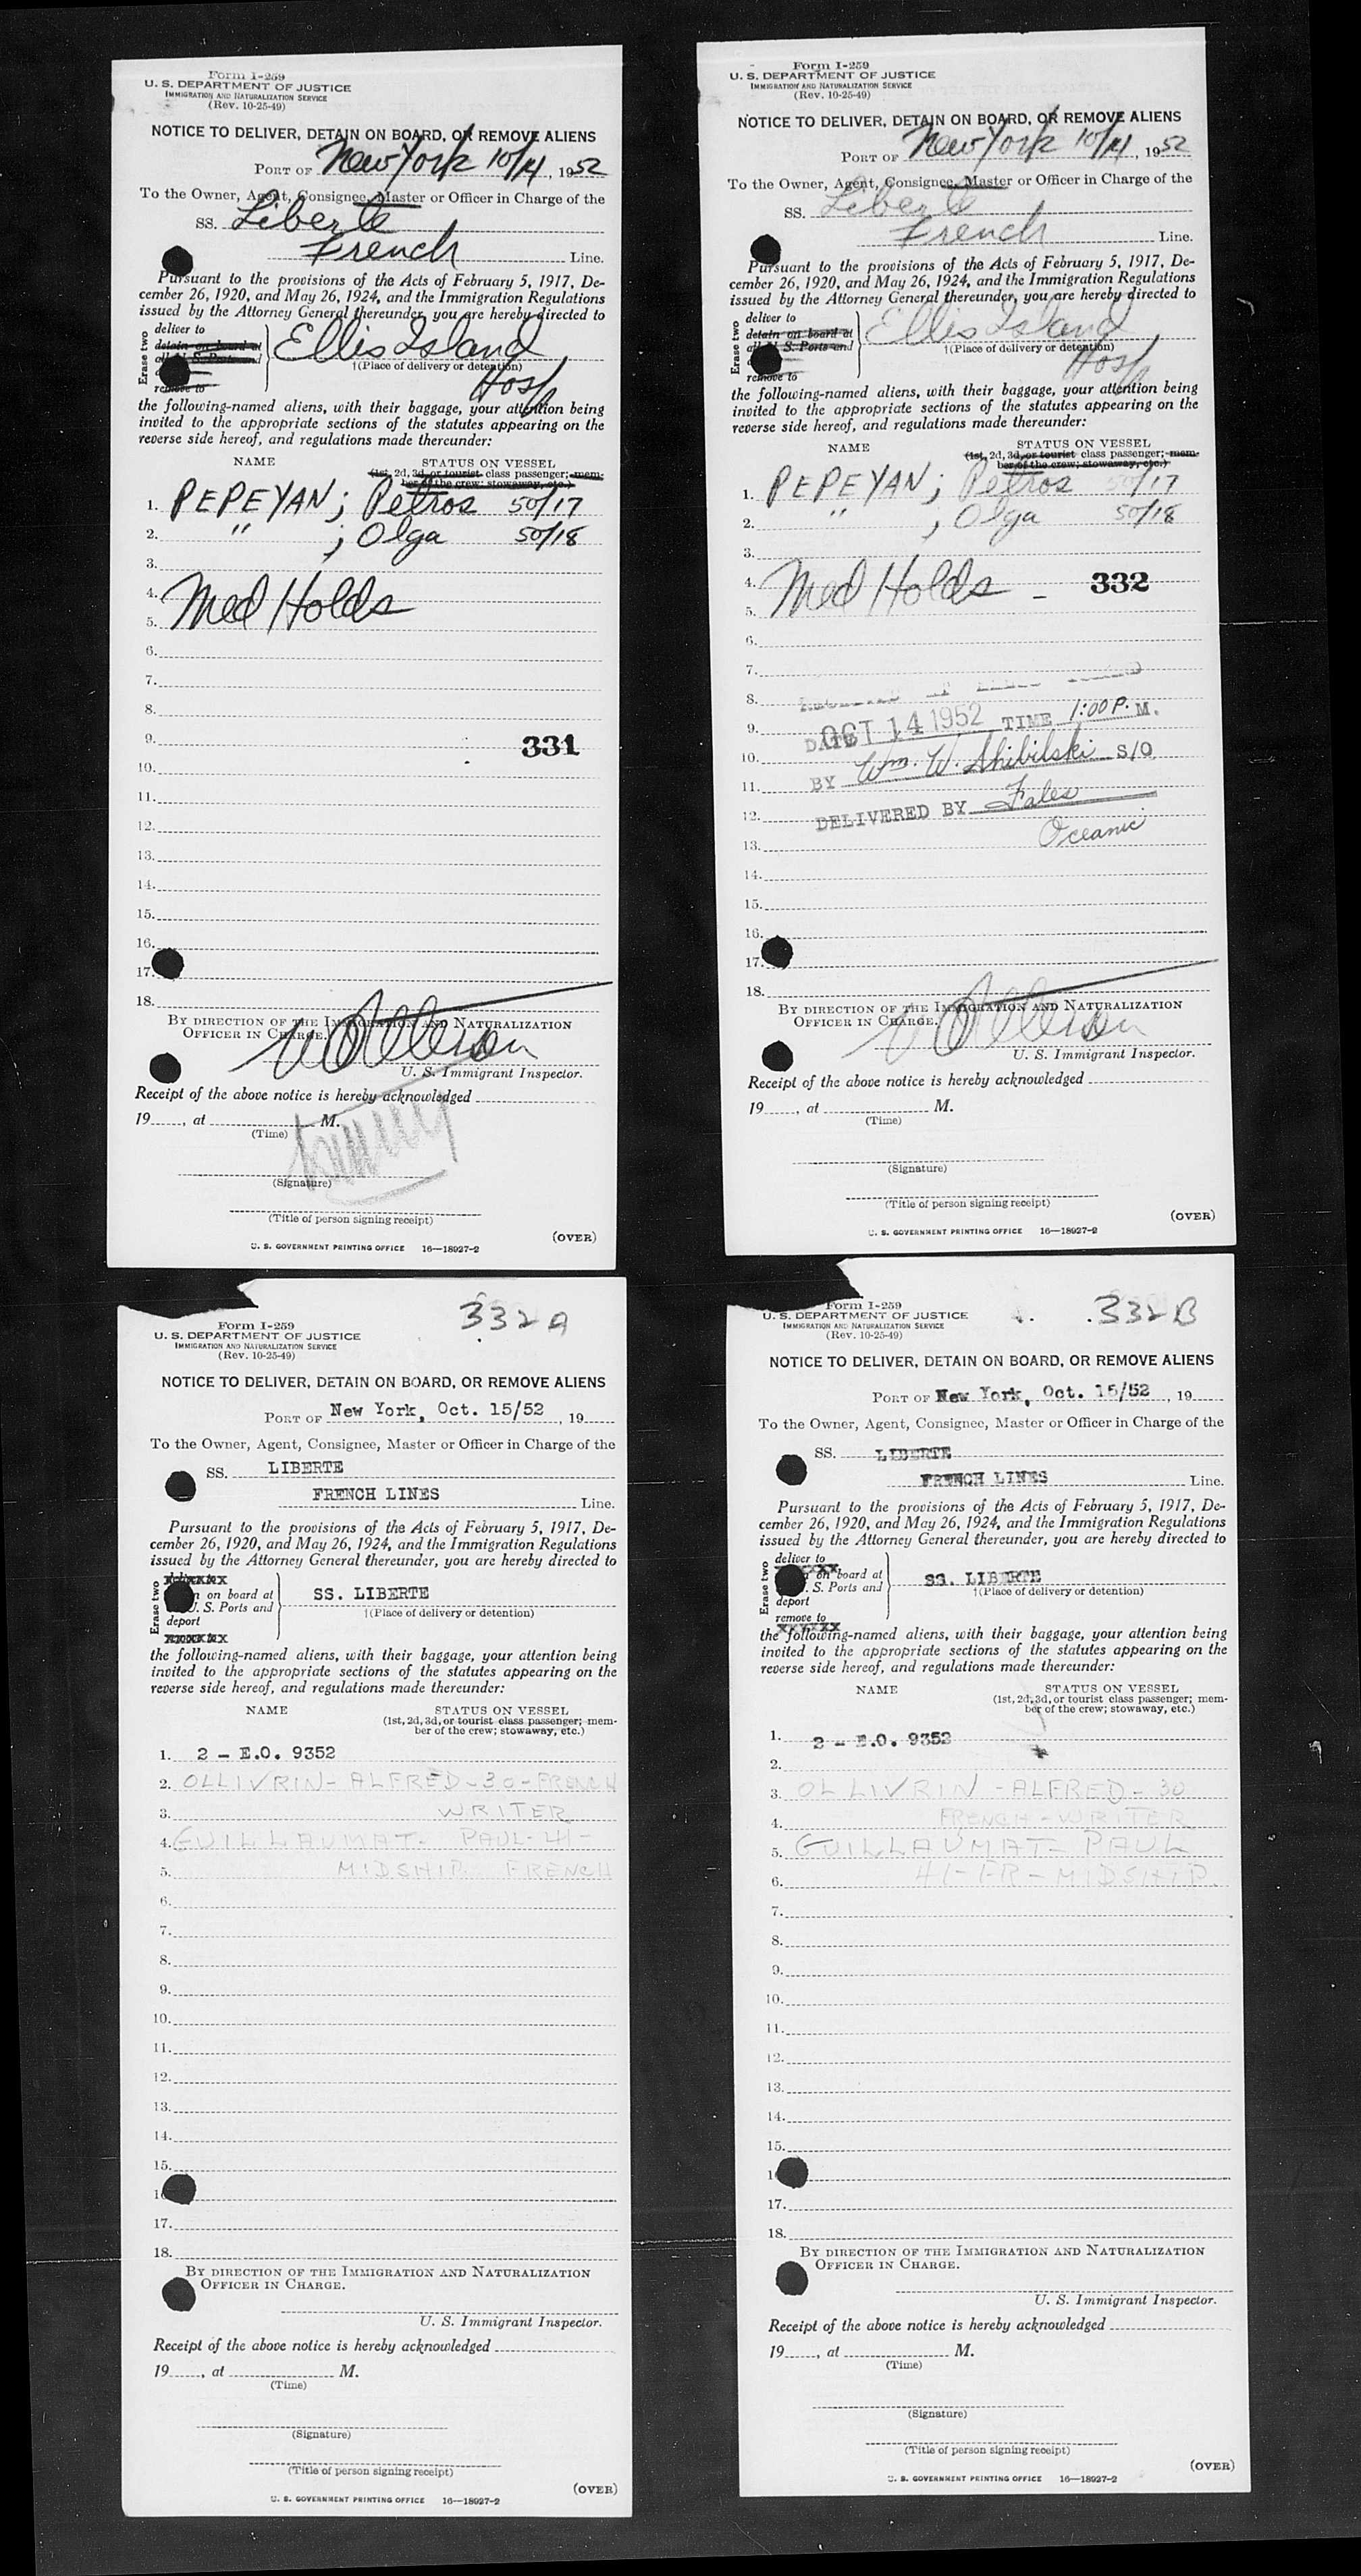 Form I-259
U. S. DEPARTMENT OF JUSTICE
IMMIGRATION AND NATURALIZATION SERVICE
(Rev. 10-25-49)
NOTICE TO DELIVER, DETAIN ON BOARD, OR REMOVE ALIENS
PORT OF New York 10/14, 1952
To the Owner, Agent, Consignee, Master or Officer in Charge of the
SS. Liberte
French Line.
Pursuant to the provisions of the Acts of February 5, 1917, De-
cember 26, 1920, and May 26, 1924, and the Immigration Regulations
issued by the Attorney General thereunder, you are hereby directed to
Erase two
deliver to
detain on board at
all U. S. Ports and
remove to
Ellis Island
†(Place of delivery or detention)
Hosp
the following-named aliens, with their baggage, your attention being
invited to the appropriate sections of the statutes appearing on the
reverse side hereof, and regulations made thereunder:
NAME STATUS ON VESSEL
(1st, 2d, 3d, or tourist class passenger; mem-
ber of the crew; stowaway, etc.)
1. PEPEYAN; Petros 50/17
2. " ; Olga 50/18
3.
4. Med Holds
5.
6.
7.
8.
9. 331
10.
11.
12.
13.
14.
15.
16.
17.
18.
BY DIRECTION OF THE IMMIGRATION AND NATURALIZATION
OFFICER IN CHARGE.
U. S. Immigrant Inspector.
Receipt of the above notice is hereby acknowledged
19, at M.
(Time)
(Signature)
(Title of person signing receipt)
(OVER)
U. S. GOVERNMENT PRINTING OFFICE 16—18927-2
Form I-259
U. S. DEPARTMENT OF JUSTICE
IMMIGRATION AND NATURALIZATION SERVICE
(Rev. 10-25-49)
NOTICE TO DELIVER, DETAIN ON BOARD, OR REMOVE ALIENS
PORT OF New York 10/14, 1952
To the Owner, Agent, Consignee, Master or Officer in Charge of the
SS. Liberte
French Line.
Pursuant to the provisions of the Acts of February 5, 1917, De-
cember 26, 1920, and May 26, 1924, and the Immigration Regulations
issued by the Attorney General thereunder, you are hereby directed to
Erase two
deliver to
detain on board at
all U. S. Ports and
remove to
Ellis Island
†(Place of delivery or detention)
Hosp
the following-named aliens, with their baggage, your attention being
invited to the appropriate sections of the statutes appearing on the
reverse side hereof, and regulations made thereunder:
NAME STATUS ON VESSEL
(1st, 2d, 3d, or tourist class passenger; mem-
ber of the crew; stowaway, etc.)
1. PEPEYAN; Petros 50/17
2. " ; Olga 50/18
3.
4. Med Holds - 332
5.
6.
7.
8.
9. DATE OCT 14 1952 TIME 1:00 P. M.
10.
11. BY Wm. W. Shibilski S/O
12. DELIVERED BY Fales
13. Oceanic
14.
15.
16.
17.
18.
BY DIRECTION OF THE IMMIGRATION AND NATURALIZATION
OFFICER IN CHARGE.
U. S. Immigrant Inspector.
Receipt of the above notice is hereby acknowledged
19, at M.
(Time)
(Signature)
(Title of person signing receipt)
(OVER)
U. S. GOVERNMENT PRINTING OFFICE 16—18927-2
332 A
Form I-259
U. S. DEPARTMENT OF JUSTICE
IMMIGRATION AND NATURALIZATION SERVICE
(Rev. 10-25-49)
NOTICE TO DELIVER, DETAIN ON BOARD, OR REMOVE ALIENS
PORT OF New York, Oct. 15/52, 19
To the Owner, Agent, Consignee, Master or Officer in Charge of the
SS. LIBERTE
FRENCH LINES Line.
Pursuant to the provisions of the Acts of February 5, 1917, De-
cember 26, 1920, and May 26, 1924, and the Immigration Regulations
issued by the Attorney General thereunder, you are hereby directed to
Erase two
on board at
S. Ports and
deport
SS. LIBERTE
†(Place of delivery or detention)
the following-named aliens, with their baggage, your attention being
invited to the appropriate sections of the statutes appearing on the
reverse side hereof, and regulations made thereunder:
NAME STATUS ON VESSEL
(1st, 2d, 3d, or tourist class passenger; mem-
ber of the crew; stowaway, etc.)
1. 2 - E.O. 9352
2. OLLIVRIN - ALFRED - 30 - FRENCH
3. WRITER
4. GUILLAUMAT - PAUL - 41 -
5. MIDSHIP FRENCH
6.
7.
8.
9.
10.
11.
12.
13.
14.
15.
17.
18.
BY DIRECTION OF THE IMMIGRATION AND NATURALIZATION
OFFICER IN CHARGE.
U. S. Immigrant Inspector.
Receipt of the above notice is hereby acknowledged
19, at M.
(Time)
(Signature)
(Title of person signing receipt)
(OVER)
U. S. GOVERNMENT PRINTING OFFICE 16—18927-2
332 B
Form I-259
U. S. DEPARTMENT OF JUSTICE
IMMIGRATION AND NATURALIZATION SERVICE
(Rev. 10-25-49)
NOTICE TO DELIVER, DETAIN ON BOARD, OR REMOVE ALIENS
PORT OF New York, Oct. 15/52, 19
To the Owner, Agent, Consignee, Master or Officer in Charge of the
SS. LIBERTE
FRENCH LINES Line.
Pursuant to the provisions of the Acts of February 5, 1917, De-
cember 26, 1920, and May 26, 1924, and the Immigration Regulations
issued by the Attorney General thereunder, you are hereby directed to
Erase two
deliver to
on board at
S. Ports and
deport
remove to
SS. LIBERTE
†(Place of delivery or detention)
the following-named aliens, with their baggage, your attention being
invited to the appropriate sections of the statutes appearing on the
reverse side hereof, and regulations made thereunder:
NAME STATUS ON VESSEL
(1st, 2d, 3d, or tourist class passenger; mem-
ber of the crew; stowaway, etc.)
1. 2 - E.O. 9352
2.
3. OLLIVRIN - ALFRED - 30
4. FRENCH - WRITER
5. GUILLAUMAT - PAUL
6. 41 - FR - MIDSHIP.
7.
8.
9.
10.
11.
12.
13.
14.
15.
17.
18.
BY DIRECTION OF THE IMMIGRATION AND NATURALIZATION
OFFICER IN CHARGE.
U. S. Immigrant Inspector.
Receipt of the above notice is hereby acknowledged
19, at M.
(Time)
(Signature)
(Title of person signing receipt)
(OVER)
U. S. GOVERNMENT PRINTING OFFICE 16—18927-2